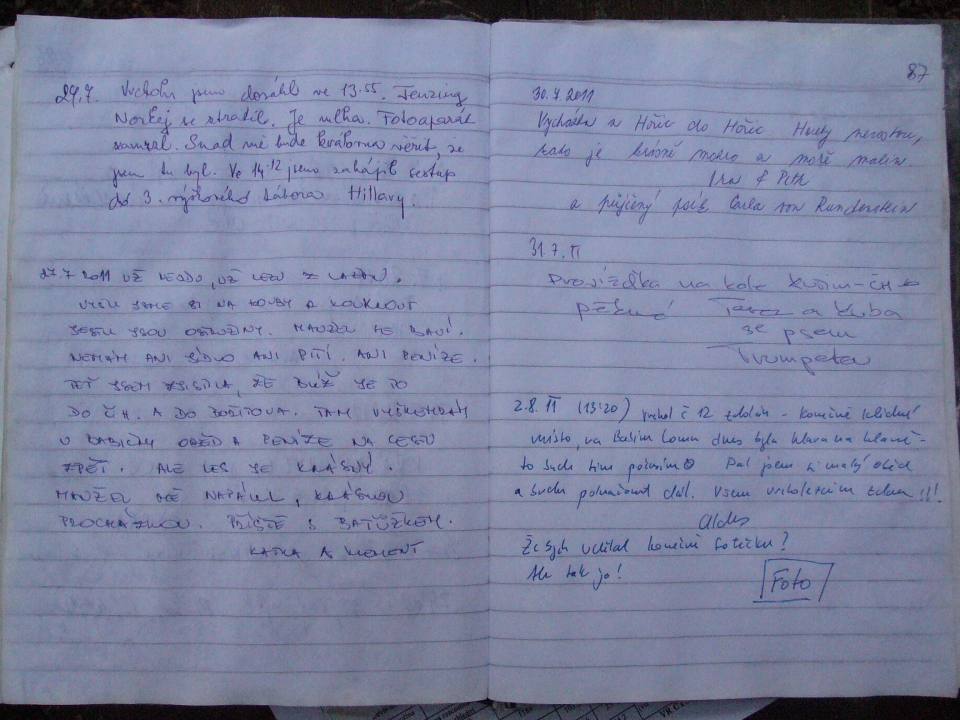 27.7. Vrcholu jsem dosáhl ve 13.55. Tenzing
Norkej se stratil. Je mlha. Fotoaparát
zamrzl. Snad mě bude královna věřit, že
jsem tu byl. Ve 14.12 jsme zahájili sestup
do 3. výškového tábora Hillary.
27.7 2011 UŽ
JSME SI NA HOUBY A KOUKNOUT
JESTLI JSOU OSTRUŽINY. MANŽEL ME BAVÍ.
NEMÁM ANI JÍDLO ANI PITÍ. ANI PENÍZE.
TEĎ JSEM ZJISTILA, ŽE BLÍŽ JE TO
DO ČH. A DO BOŘITOVA. TAM
U BABIČKY OBĚD A PENÍZE NA CESTU
ZPĚT. ALE LES JE KRÁSNÝ.
MANŽEL MĚ NAPÁLIL, KRÁSNOU
PROCHÁZKOU. PŘÍŠTĚ S BATŮŽKEM.
KATKA A KLEMENT
87
30.7.2011
Vycházka z Hořic do Hořic Houby nerostou,
zato je krásně mokro a moře malin.
Ira & Petr
a půjčený psík Carla von Rundenstein
31.7.11
Projížďka na kole Kuřim-ČH
pěkné a Kuba
se psem
Trumpetou
2.8.11 (13:20) vrchol č 12 zdolán - konečně klidné
místo, na Bašim Lomu dnes byla hlava na hlavě -
to budu tím počasím Dal jsem si malý oběd
a budu pokračovat dál. Všem vrcholečním zdar!!!
Aldos
Že bych udělal konečně fotečku?
Ale tak jo!
Foto